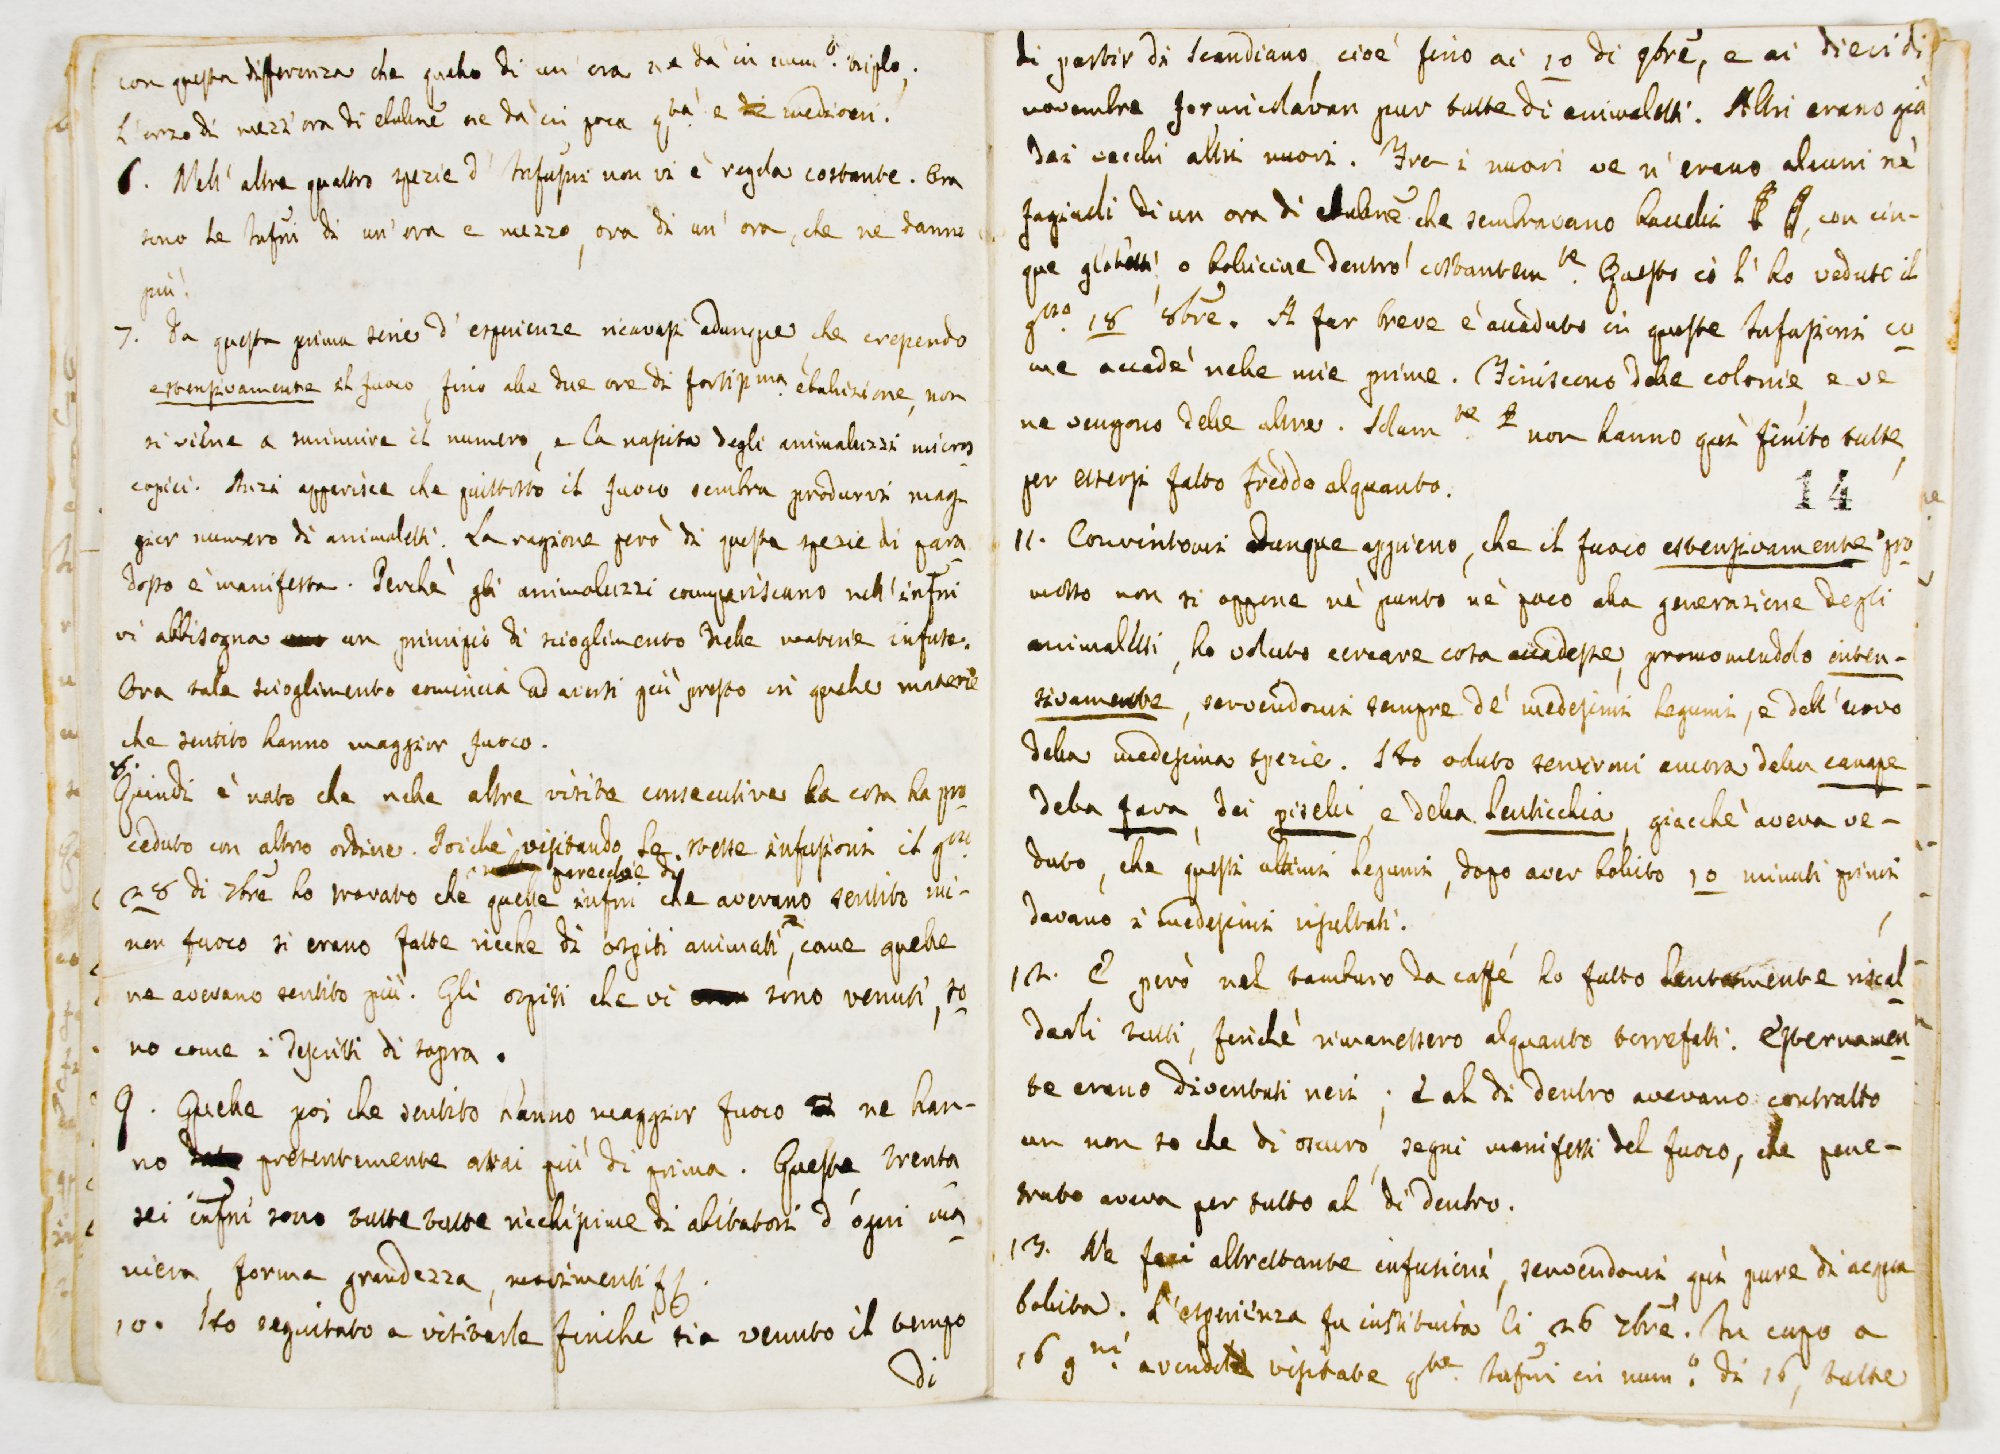 con questa differenza che quello di un' ora ne dà in num.º triplo,
L'orzo di mezz'ora di eboline ne dà in poca qtà e di mediocri.
6. Nell' altre quattro spezie d' Infusni non vi è regola costante. Ora
sono le Infuni di un' ora e mezzo, ora di un' ora, che ne danno
più.
7. Da questa prima serie d' esperienze ricavasi adunque che crescendo
estensivamente il fuoco, fino alle due ore di fortissma ebulizione, non
si viene a sminuire il numero, e la nascita degli animaluzzi micros
copici. Anzi apparisce che piuttosto il fuoco sembra produrvi mag-
gior numero di animaletti. La ragione però di questa spezie di para
dosso è manifesta. Perchè gli animaluzzi compariscano nell' infuni
vi abbisogna un principio di scioglimento delle materie infuse.
Ora tale scioglimento comincia ad aversi più presto in quelle materie
che sentito hanno maggior fuoco.
8. Quindi è nato che nelle altre visite consecutive la cosa ha pro
ceduto con altro ordine. Poichè visitando le stesse infusioni il gno
28 di 7bre ho trovato che parecchie di quelle infuni che avevano sentito mi-
nor fuoco si erano fatte ricche di ospiti animati, come quelle
ne avevano sentito più. Gli ospiti che vi sono venuti, so
no come i descritti di sopra.
9. Quelle poi che sentito hanno maggior fuoco ne han-
no presentemente assai più di prima. Queste trenta
sei infuni sono tutte tutte ricchissime di abitatori d' ogni ma
niera, forma grandezza, movimenti
10. Ho seguitato a visitarle finchè sia venuto il tempo
di
di partir di Scandiano, cioè fino ai 10 di 9bre, e ai dieci di
novembre formicolavan pur tutte di animaletti. Altri erano già
dei vecchi altri nuovi. Fra i nuovi ve n' erano alcuni ne'
fagiuoli di un ora di eboline che sembravano baccelli, con cin-
que globetti, o bollicine dentro costantemte. Questo ciò l' ho veduto il
gno 18 8bre. A far breve è accaduto in queste Infusioni co
me accade nelle mie prime. Finiscono delle colonie, e ve
ne vengono delle altre. Solamte non hanno quì finito tutte,
per essersi fatto freddo alquanto.
14
11. Convintomi dunque appieno, che il fuoco estensivamente pro
mosso non si oppone nè punto nè poco alla generazione degli
animaletti, ho voluto cercare cosa accadesse, promovendolo inten-
sivamente, servendomi sempre de' medesimi legumi, e dell' uovo
della medesima spezie. Ho voluto servirmi ancora della canape
della fava, dei piselli, e della lenticchia, giacchè aveva ve-
duto, che questi ultimi legumi, dopo aver bollito 10 minuti primi
davano i medesimi risultati.
12. E però nel tamburo da caffé ho fatto lentamente riscal
darli tutti, finchè rimanessero alquanto torrefatti. Esternamen
te erano diventati neri; e al di dentro avevano contratto
un non so che di oscuro, segni manifesti del fuoco, che pene-
trato aveva per tutto al di dentro.
13. Ne feci altrettante infusioni, servendomi quì pure di acqua
bollita. L' esperienza fu instituita li 26 7bre. In capo a
16 gni avendole visitate qste Infuni in num.º di 16, tutte